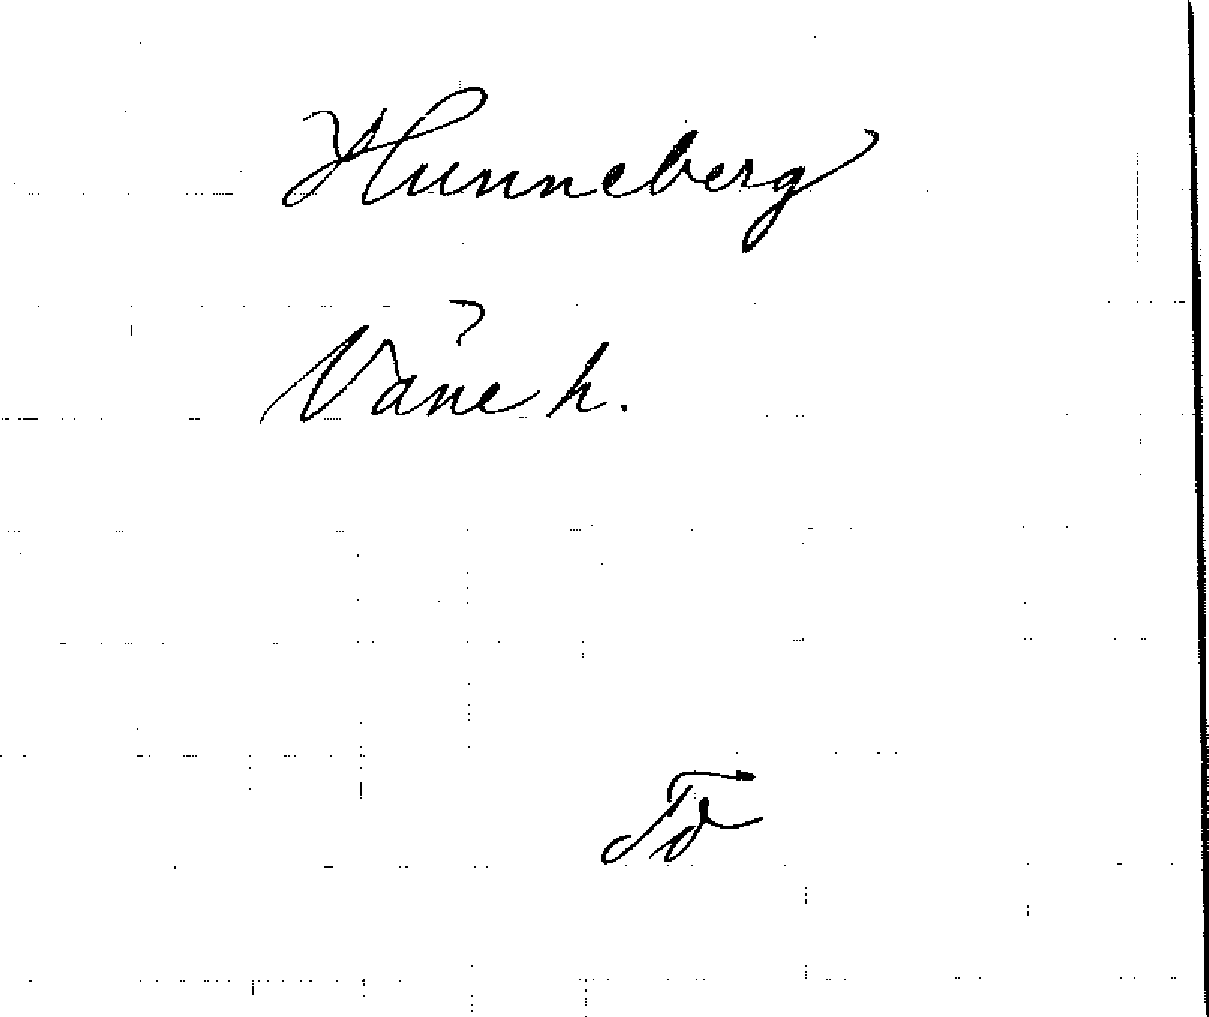 Hunneberg
Väne h.
To